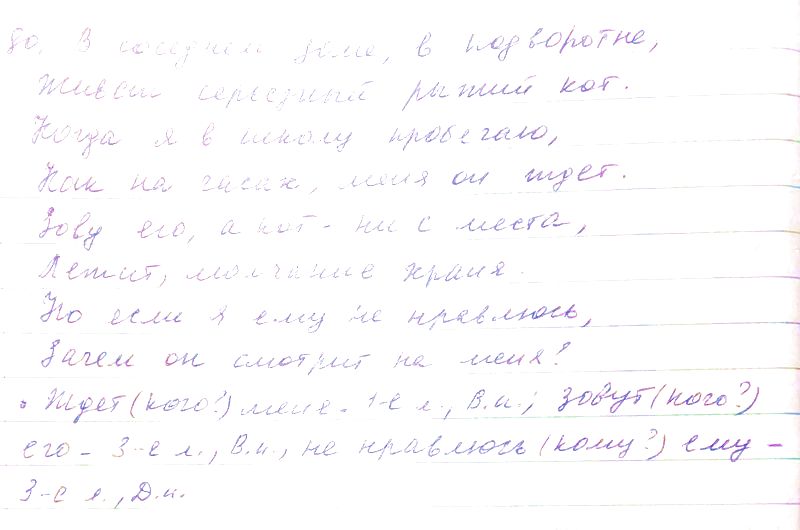 80. В соседнем доме, в подворотне,
Живёт серьезный рыжий кот.
Когда я в школу пробегаю,
Как на часах, меня он ждет.
Зову его, а кот - ни с места,
Лежит, молчание храня.
Но если я ему не нравлюсь,
Зачем он смотрит на меня?
• Ждет (кого?) меня - 1-е л., В.п.; зовут (кого?)
его - 3-е л., В.п., не нравлюсь (кому?) ему -
3-е л., Д.п.